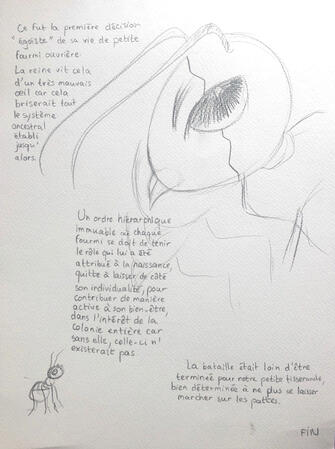 Ce fut la première décision
"égoïste" de sa vie de petite
fourmi ouvrière.
La reine vit cela
d'un très mauvais
œil car cela
briserait tout
le système
ancestral
établi
jusqu'
alors.
Un ordre hiérarchique
immuable où chaque
fourmi se doit de tenir
le rôle qui lui a été
attribué à la naissance,
quitte à laisser de côté
son individualité, pour
contribuer de manière
active à son bien-être,
dans l'intérêt de la
colonie entière car
sans elle, celle-ci n'
existerait pas.
La bataille était loin d'être
terminée pour notre petite tisserande
bien déterminée à ne plus se laisser
marcher sur les pattes.
FIN